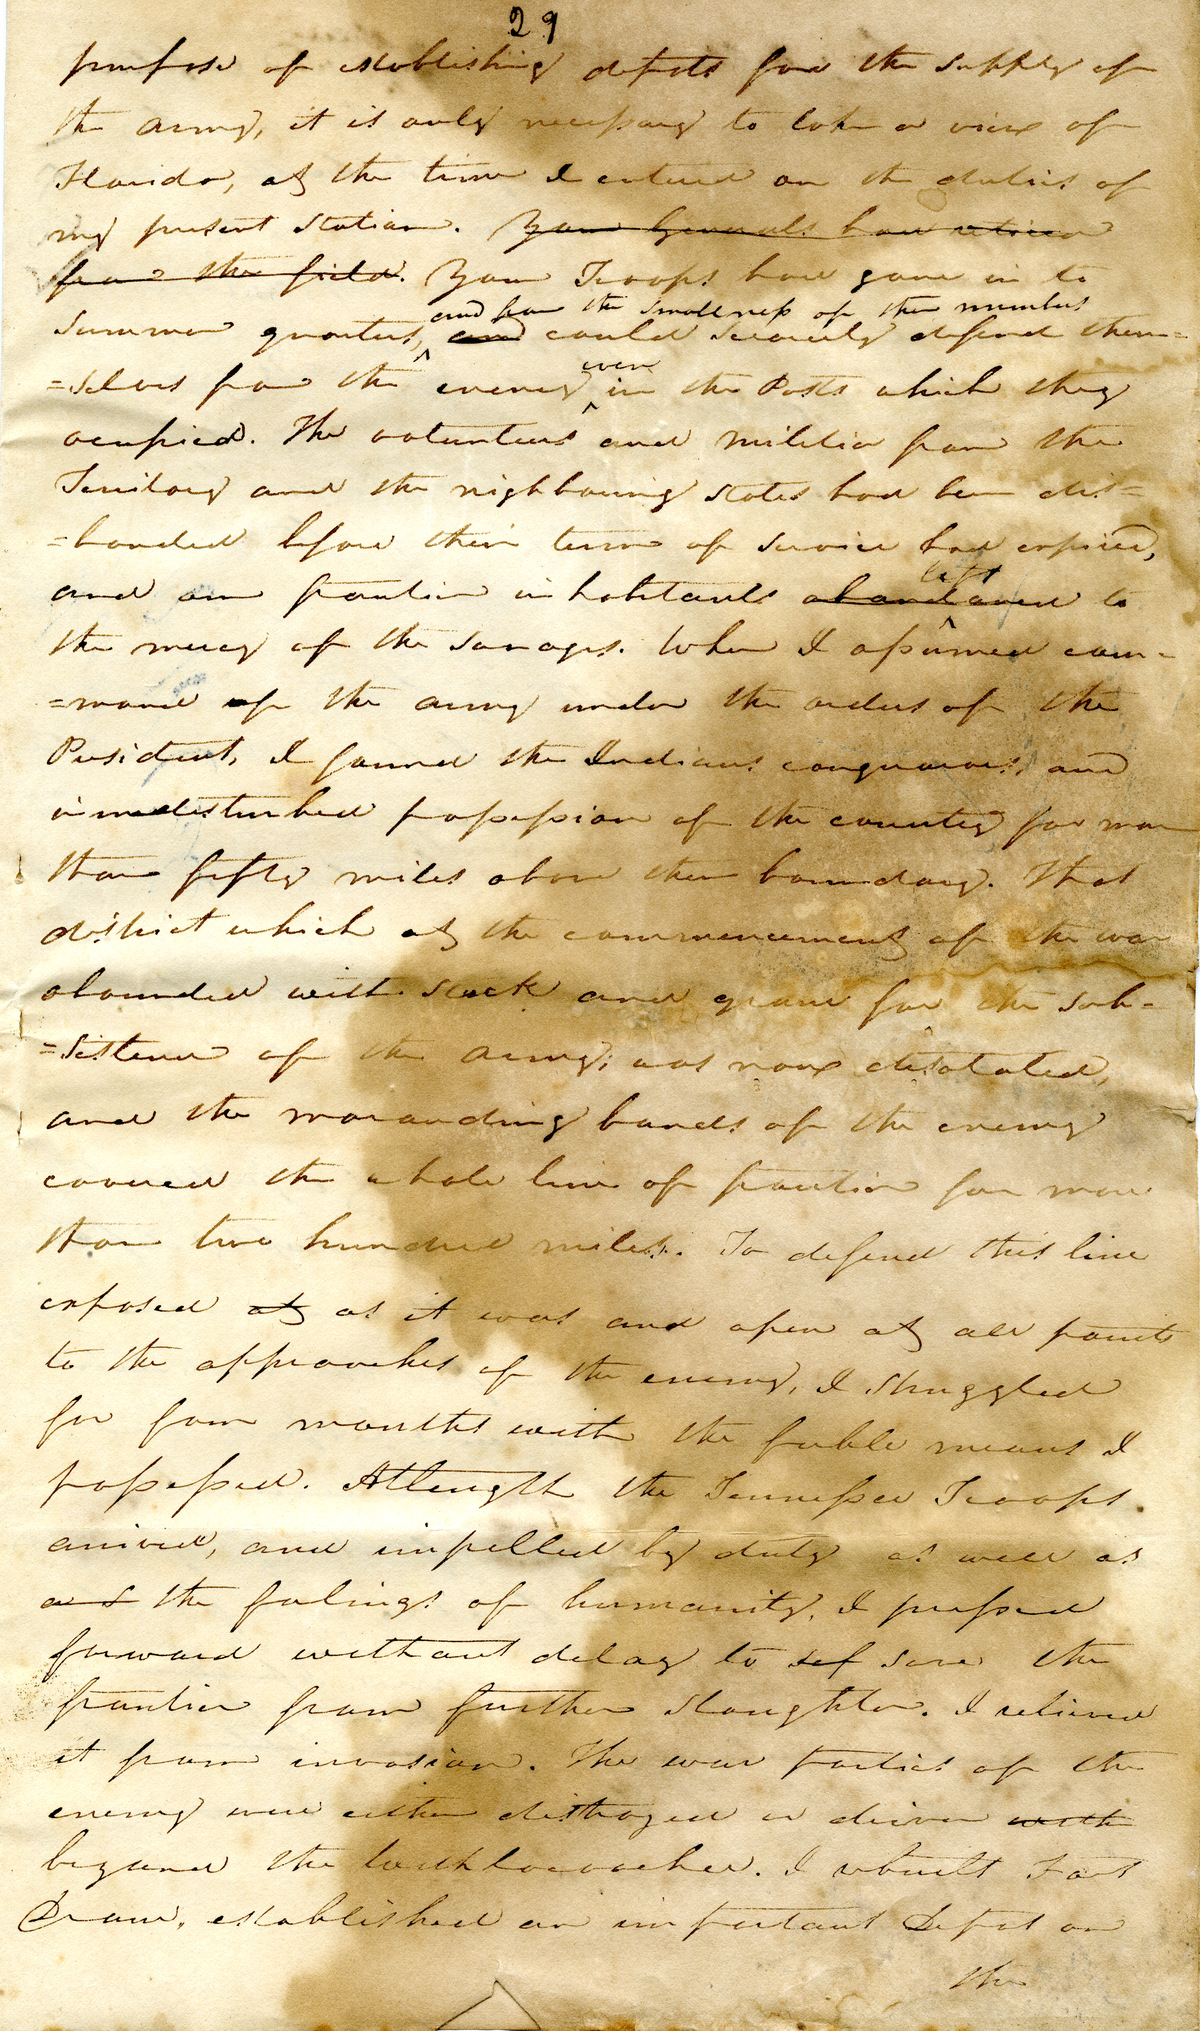 29
purpose of establishing depots for the supply of
the army, it is only necessary to take a view of
Florida, at the time I entered on the duties of
my present station. Your Generals have retired
from the field. Your Troops have gone in to
and from the smallness of their numbers
summer quarters, and could scarcely defend them=
even
=selves from the enemy in the Posts which they
ocupied. The volunteers and militia from the
Territory and the nighbouring states had been dis=
=banded before their term of service had expired,
left
and our frontier inhabitants abandaned to
the mercy of the savages. When I assumed com=
=mand of the army under the orders of the
President, I found the Indians conquerors, and
in undesturbed possession of the country for more
than fifty miles above their boundary. That
district which at the commencement of the war
abounded with stock and grain for the sub=
=sistence of the army; was now desolated,
and the marauding bands of the enemy
covered the whole line of frontier for more
than two hundred miles. To defend this line
exposed at as it was and open at all points
to the approaches of the enemy, I struggled
for four months with the feeble means I
possessed. At length the Tennessee Troops
arrived, and impelled by duty as well as
the feelings of humanity, I pressed
forward without delay to sef save the
frontier from further slaughter. I relieved
it from invasion. The war parties of the
enemy were either distroyed or driven with
beyond the Withlacoochee. I rebuilt Fort
Drane, established an important Depot on
the